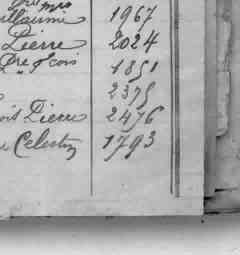 illaume 1967
Pierre 2024
Pre fcois 1851
2375
ois Pierre 2476
e Celestin 1793